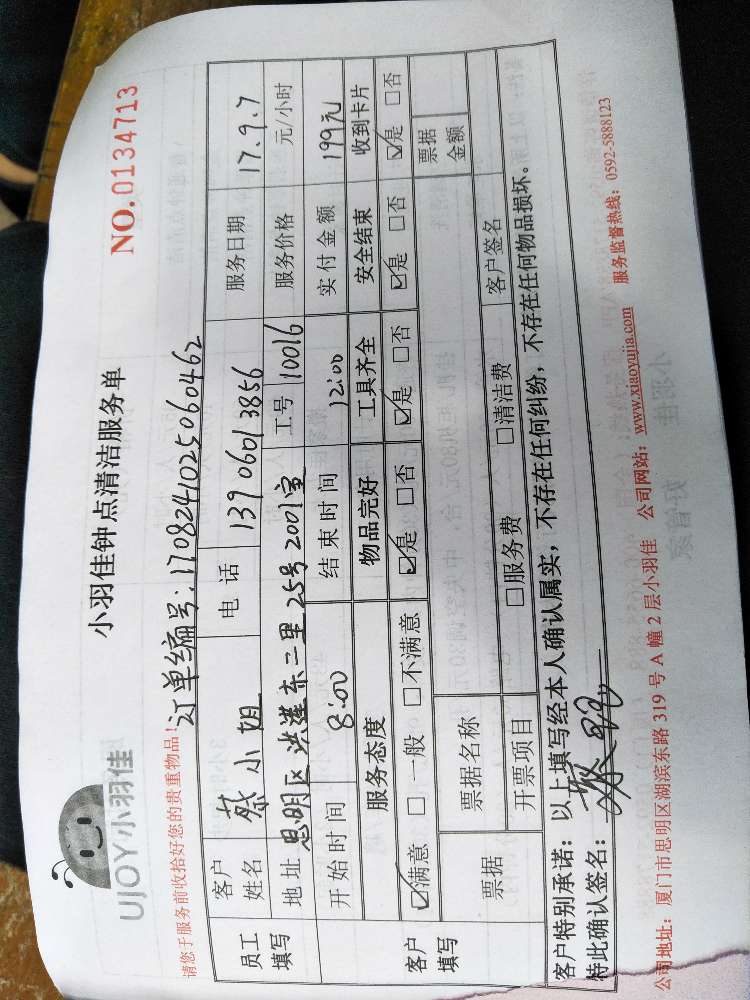 UJOY小羽佳
小羽佳钟点清洁服务单
NO.0134713
请您于服务前收拾好您的贵重物品!
订单编号:1708241025060462
员工填写
客户姓名 蔡小姐 电话 13906013856 服务日期 17.9.7
地址 思明区洪莲东二里25号2001室 工号 10016 服务价格 元/小时
开始时间 8:00 结束时间 12:00 实付金额 199元
客户填写
服务态度 物品完好 工具齐全 安全结束 收到卡片
☑满意 □一般 □不满意 ☑是 □否 ☑是 □否 ☑是 □否 ☑是 □否
票据 票据名称 票据金额
开票项目 □服务费 □清洁费 客户签名
客户特别承诺:以上填写经本人确认属实,不存在任何纠纷,不存在任何物品损坏。
特此确认签名:
公司地址:厦门市思明区湖滨东路319号A幢2层小羽佳 公司网站:www.xiaoyujia.com 服务监督热线:0592-5888123